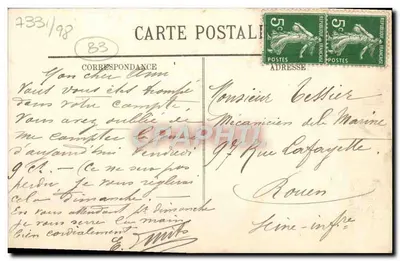 7331/98
83
CARTE POSTALE
CORRESPONDANCE
ADRESSE
5c
5c
POSTES
POSTES
Mon cher Ami
Vous vous êtes trompé
dans votre compte,
Vous avez oublié de
me compter
d'aujourd'hui Vendredi
9 Ct. - Ce ne sera pas
perdu, je vous règlerai
cela dimanche. -
En vous attendant dimanche
je vous serre la main
bien cordialement
E.
Monsieur Tessier
Mécanicien de la Marine
99 Rue Lafayette
Rouen
Seine-Infre
CPAPHIL